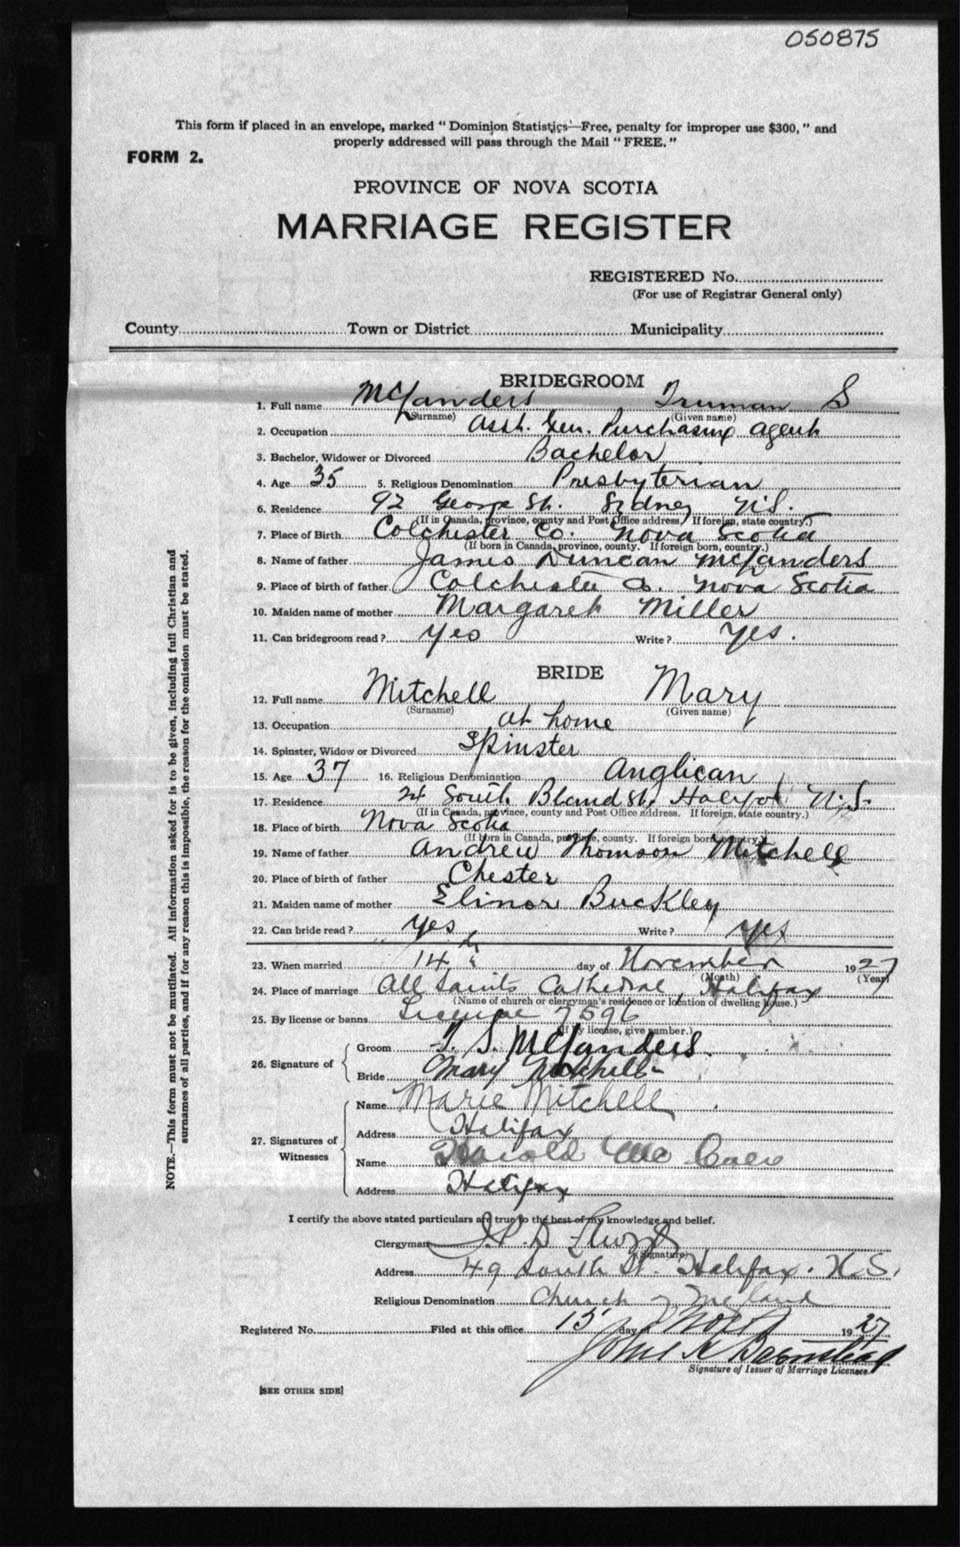 050875
This form if placed in an envelope, marked "Dominion Statistics—Free, penalty for improper use $300," and
properly addressed will pass through the Mail "FREE."
FORM 2.
PROVINCE OF NOVA SCOTIA
MARRIAGE REGISTER
REGISTERED No.
(For use of Registrar General only)
County Town or District Municipality
BRIDEGROOM
1. Full name Truman S
(Surname) (Given name)
2. Occupation Asst. Gen. Purchasing agent
3. Bachelor, Widower or Divorced Bachelor
4. Age 35 5. Religious Denomination Presbyterian
6. Residence 92 George St. Sydney N.S.
(If in Canada, province, county and Post Office address. If foreign, state country.)
7. Place of Birth Colchester Co. Nova Scotia
(If born in Canada, province, county. If foreign born, country.)
8. Name of father James Duncan
9. Place of birth of father Colchester Co. Nova Scotia
10. Maiden name of mother Margaret Miller
11. Can bridegroom read? Yes Write? Yes.
BRIDE
12. Full name Mitchell Mary
(Surname) (Given name)
13. Occupation at home
14. Spinster, Widow or Divorced Spinster
15. Age 37 16. Religious Denomination Anglican
17. Residence 24 South Bland St. Halifax N.S.
(If in Canada, province, county and Post Office address. If foreign, state country.)
18. Place of birth Nova Scotia
(If born in Canada, province, county. If foreign born, country.)
19. Name of father Andrew Thomson Mitchell
20. Place of birth of father Chester
21. Maiden name of mother Elinor Buckley
22. Can bride read? Yes Write? yes
23. When married 14th day of November 1927
(Month) (Year)
24. Place of marriage All Saints Cathedral, Halifax
(Name of church or clergyman's residence or location of dwelling house.)
25. By license or banns License 7596
(If by license, give number.)
26. Signature of Groom T. S.
Bride Mary Mitchell
27. Signatures of Witnesses
Name Marie Mitchell
Address Halifax
Name Harold Mc
Address Halifax
I certify the above stated particulars are true to the best of my knowledge and belief.
Clergyman
(Signature)
Address 49 South St. Halifax. N.S.
Religious Denomination Church of England
Registered No. Filed at this office 15 day of Nov 1927
John
Signature of Issuer of Marriage Licenses
[SEE OTHER SIDE]
NOTE.—This form must not be mutilated. All information asked for is to be given, including full Christian and
surnames of all parties, and if for any reason this is impossible, the reason for the omission must be stated.